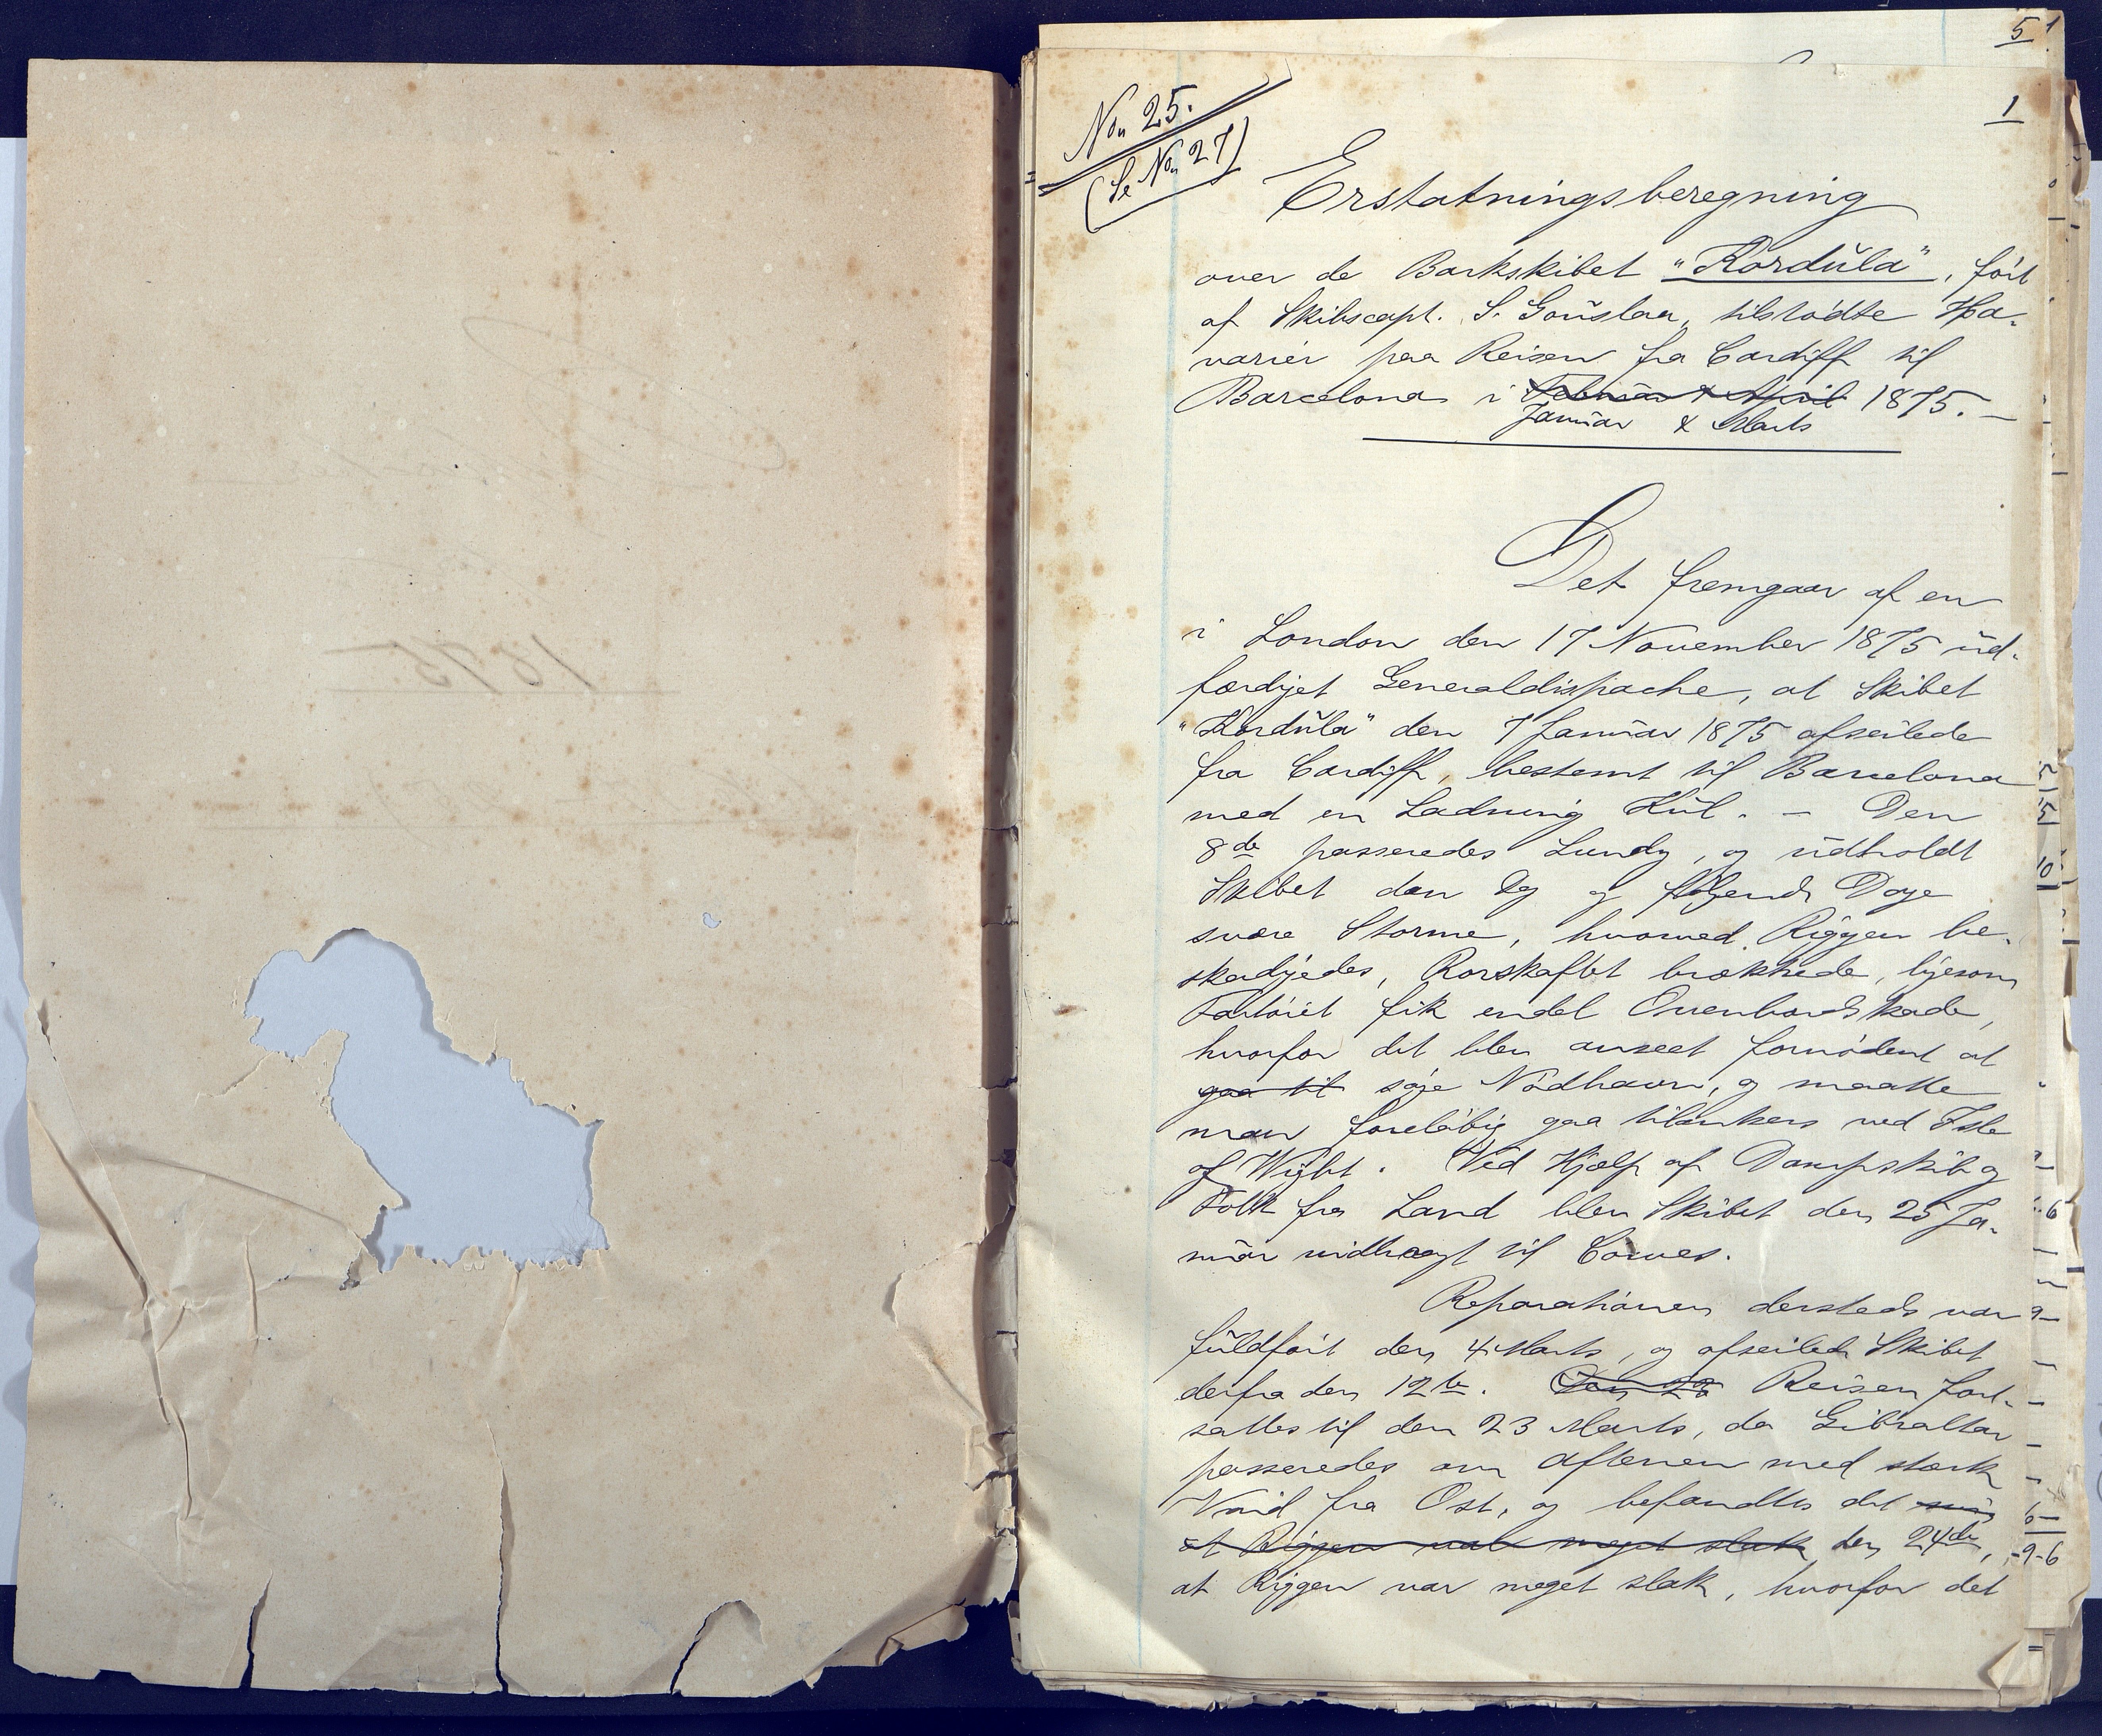 5
1
No 25.
(Se No 27)
1
Erstatningsberegning
over de Barkskibet "Kordŭla", ført
af Skibscapt. S. Gouslaa, tilstødte Ha-
varier paa Reisen fra Cardiff til
Barcelona i Februar & April 1875. —
Januar & Marts
Det fremgaar af en
i London den 17 November 1875 ud-
færdiget Generaldispache, at Skibet
"Kordŭla" den 7 Januar 1875 afseilede
fra Cardiff, bestemt til Barcelona
med en Ladning Kul. — Den
8de passeredes Lundy, og udholdt
Skibet den Dg og følgende Dage
svære Storme, hvorved Riggen be-
skadigedes, Rorskaftet brækkede, ligesom
Fartøiet fik endel Overbordskade,
hvorfor det blev anseet fornødent at
gaa til søge Nødhavn, og maatte
man foreløbig gaa tilankers ved Isle
of Wight. Ved Hjælp af Dampskib og
Folk fra Land blev Skibet den 25 Ja-
nuar indbragt til Cowes.
Reparationen dersteds var
fuldført den 4 Marts, og afseilede Skibet
derfra den 12te. Den 23 Reisen fort-
sattes til den 23 Marts, da Gibraltar
passeredes om Aftenen med stærk
Vind fra Ost, og befandtes det
at Riggen var meget slak den 24de,
at Riggen var meget slak, hvorfor det
1875.